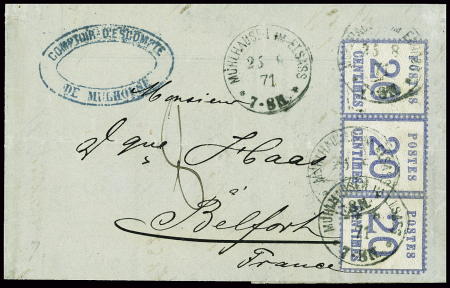 COMPTOIR D'ESCOMPTE
DE MULHOUSE
MÜLHAUSEN IM ELSASS
25 8
71
7-8N.
POSTES
20
CENTIMES
POSTES
20
CENTIMES
POSTES
20
CENTIMES
MÜLHAUSEN IM ELSASS
71
7-8N.
Monsieur
Jque Haas
à
Belfort
France